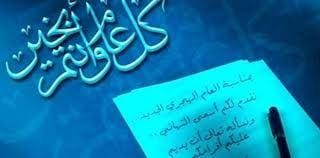 كل عام وأنتم بخير
بمناسبة العام الهجري الجديد..
نقدم لكم أسمى التهاني..
ونسأله تعالى أن يديم
عليكم أفراحكم